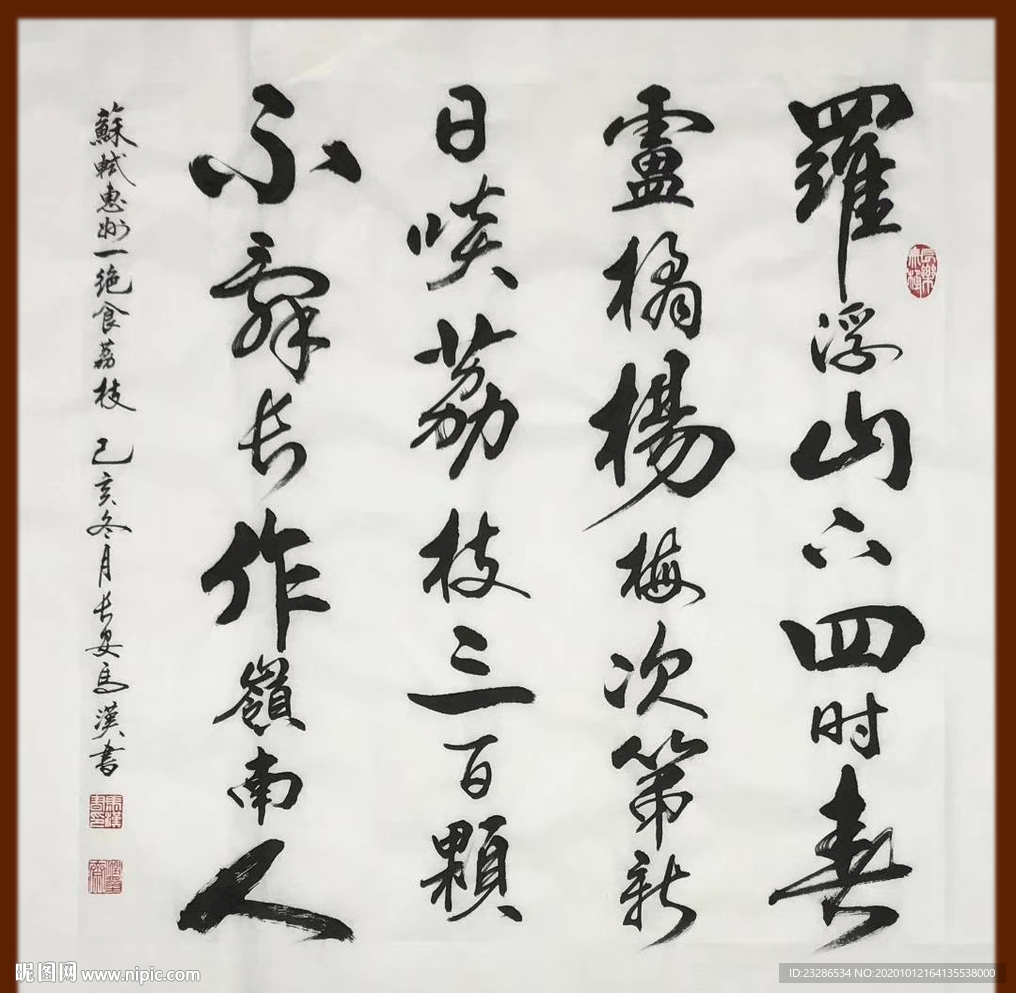 羅浮山下四时春
盧橘楊梅次第新
日啖荔枝三百顆
不辭长作嶺南人
蘇軾惠州一绝食荔枝 己亥冬月长安马漢書
昵图网 www.nipic.com
ID:23286534 NO:20201012164135538000